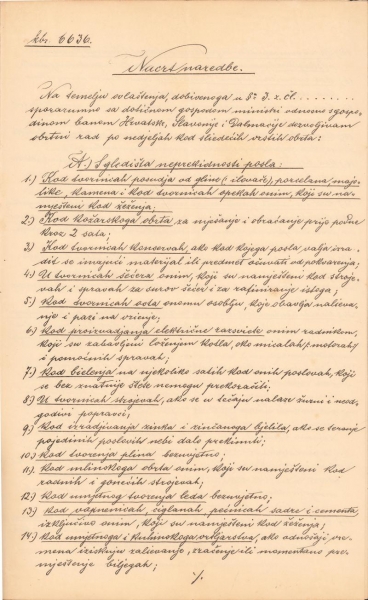 kbr. 6636.
Nacrt naredbe.
Na temelju ovlaštenja, dobivenoga u §u 3. z. čl. ........
sporazumno sa dotičnom gospodom ministri odnosno s gospo-
dinom banom Hrvatske, Slavonije i Dalmacije dozvoljivam
obrtni rad po nedjeljah kod sliedećih vrstih obrta:
A.) S gledišta neprekidnosti posla:
1.) Kod tvornicah posudja od gline (i ilovače), porcelana, majo-
like, kamena i kod tvornicah opekah onim, koji su na-
mješteni kod žeženja;
2.) Kod kožarskoga obrta za miešanje i obraćanje prije podne
kroz 2 sata;
3.) Kod tvornicah konservah, ako kod kojega posla valja izra-
diti se imajući materijal ili predmet očuvati od pokvarenja;
4.) U tvornicah šećera onim, koji su namješteni kod stroje-
vah i spravah za surov šećer i za rafiniranje istoga;
5.) Kod tvornicah soda onomu osoblju, koje obavlja
nje i pazi na
6.) Kod proizvadjanja električne razsviete onim radnikom,
koji su zabavljeni loženjem kotla, oko micalah (motorah)
i pomoćnih spravah;
7.) Kod bielenja na njekoliko satih kod onih poslovah, koji
se bez znatnije štete nemogu prekoračiti;
8.) U tvornicah strojevah, ako se u tečaju nalaze žurni i neod-
godivi popravci;
9.) Kod izradjivanja zinka i zinčanoga bjelila, ako se
pojedinih poslovih nebi dalo prekinuti;
10.) Kod tvorenja plina bezuvjetno;
11.) Kod mlinskoga obrta onim, koji su namješteni kod
radnih i gonećih strojevah;
12.) Kod umjetnog tvorenja leda bezuvjetno;
13.) Kod vapnenicah, ciglanah, pećnicah sadre i cementa
izključivo onim, koji su namješteni kod žeženja;
14.) Kod umjetnoga i kuhinjskoga vrtljarstva, ako odnošaji vre-
mena iziskuju zalievanje, zračenje ili momentano pre-
mještenje biljegah;
./.